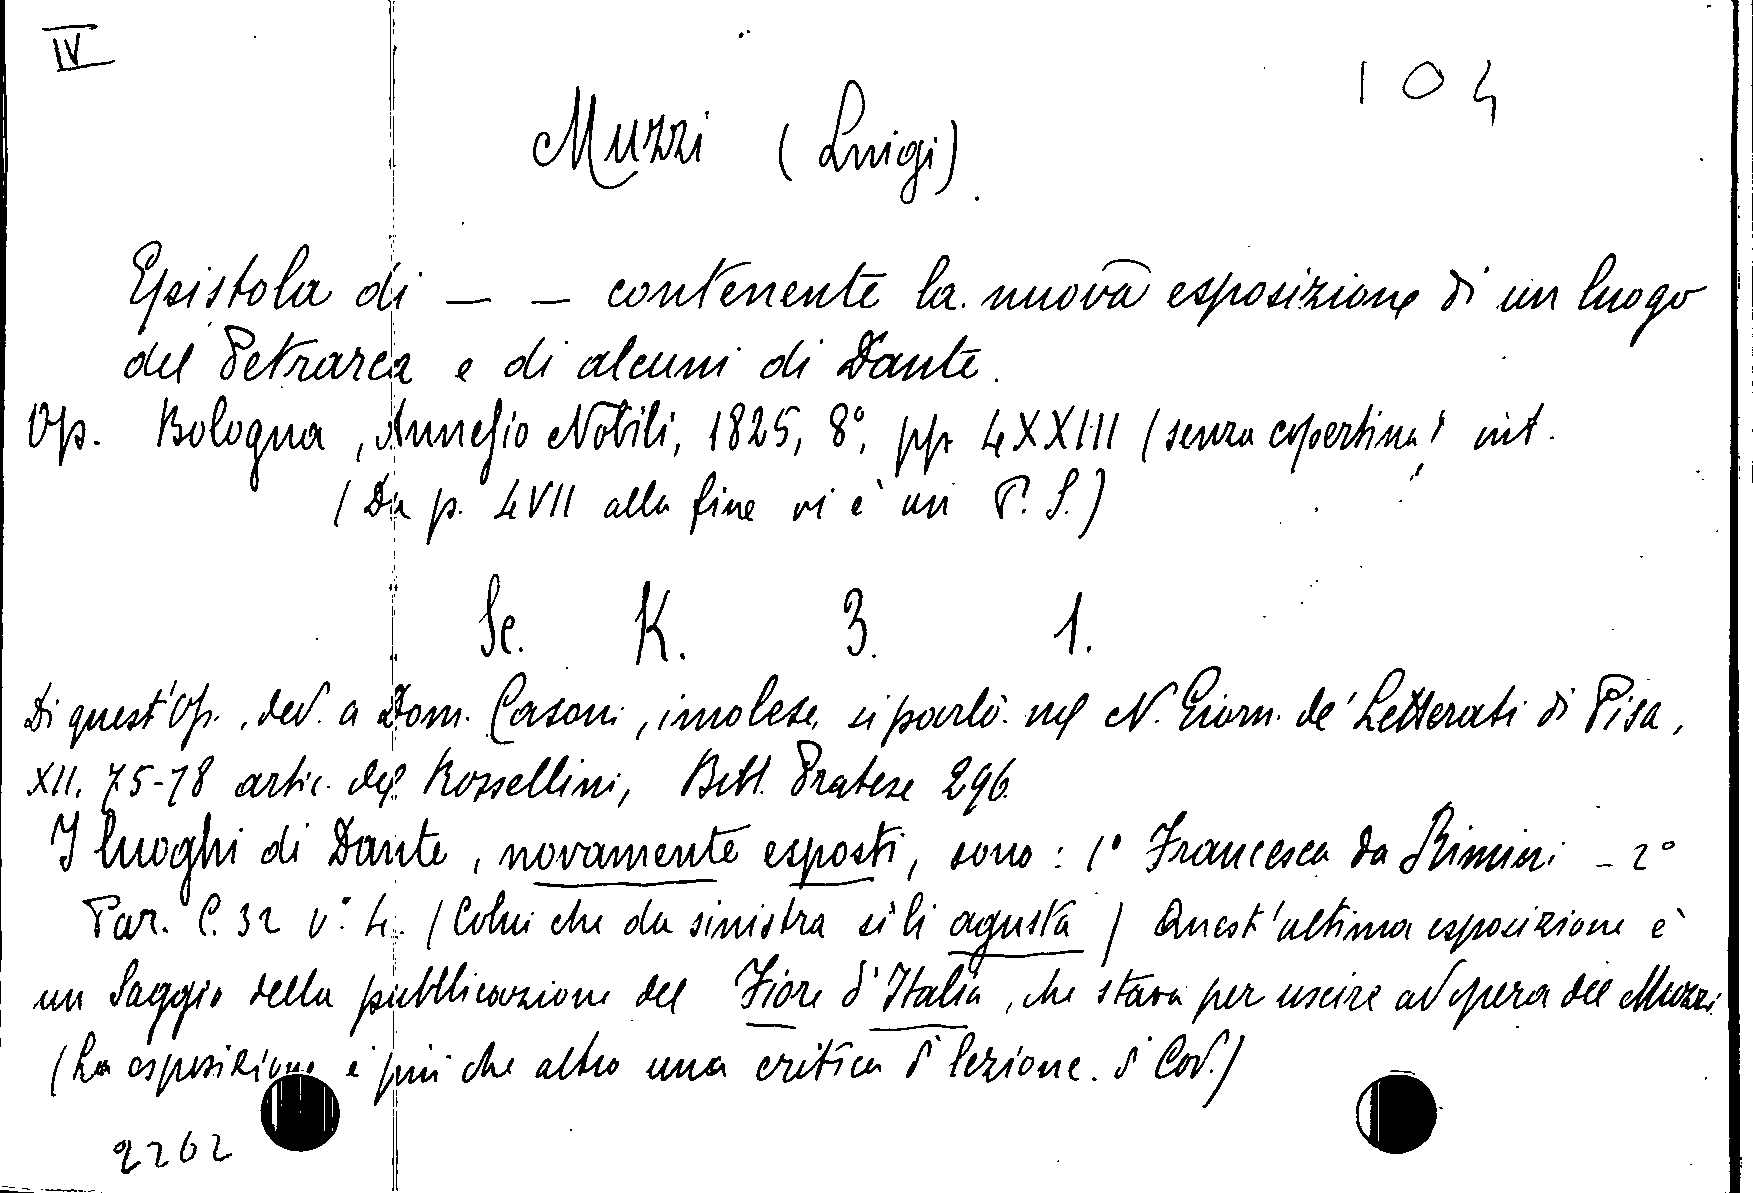 IV
104
Muzzi (Luigi).
Epistola di — — contenente la nuova esposizione di un luogo
del Petrarca e di alcuni di Dante.
Op. Bologna, Annesio Nobili, 1825, 8°, pp. LXXIII (senza copertina) int.
(Da p. LVII alla fine vi è un P. S.)
Sc. K. 3. 1.
Di quest'Op., ded. a Dom. Casoni, imolese, si parlò nel N. Giorn. de' Letterati di Pisa,
XII, 75-78 artic. del Rossellini, Bibl. Pratese 296.
I luoghi di Dante, novamente esposti, sono: 1° Francesca da Rimini - 2°
Par. C. 32 v. 4. (Colui che da sinistra si li agusta) Quest'ultima esposizione è
un Saggio della pubblicazione del Fiore d'Italia, che stava per uscire ad opera del Muzzi.
(La esposizione è più che altro una critica d lezione. d Cod.)
2262